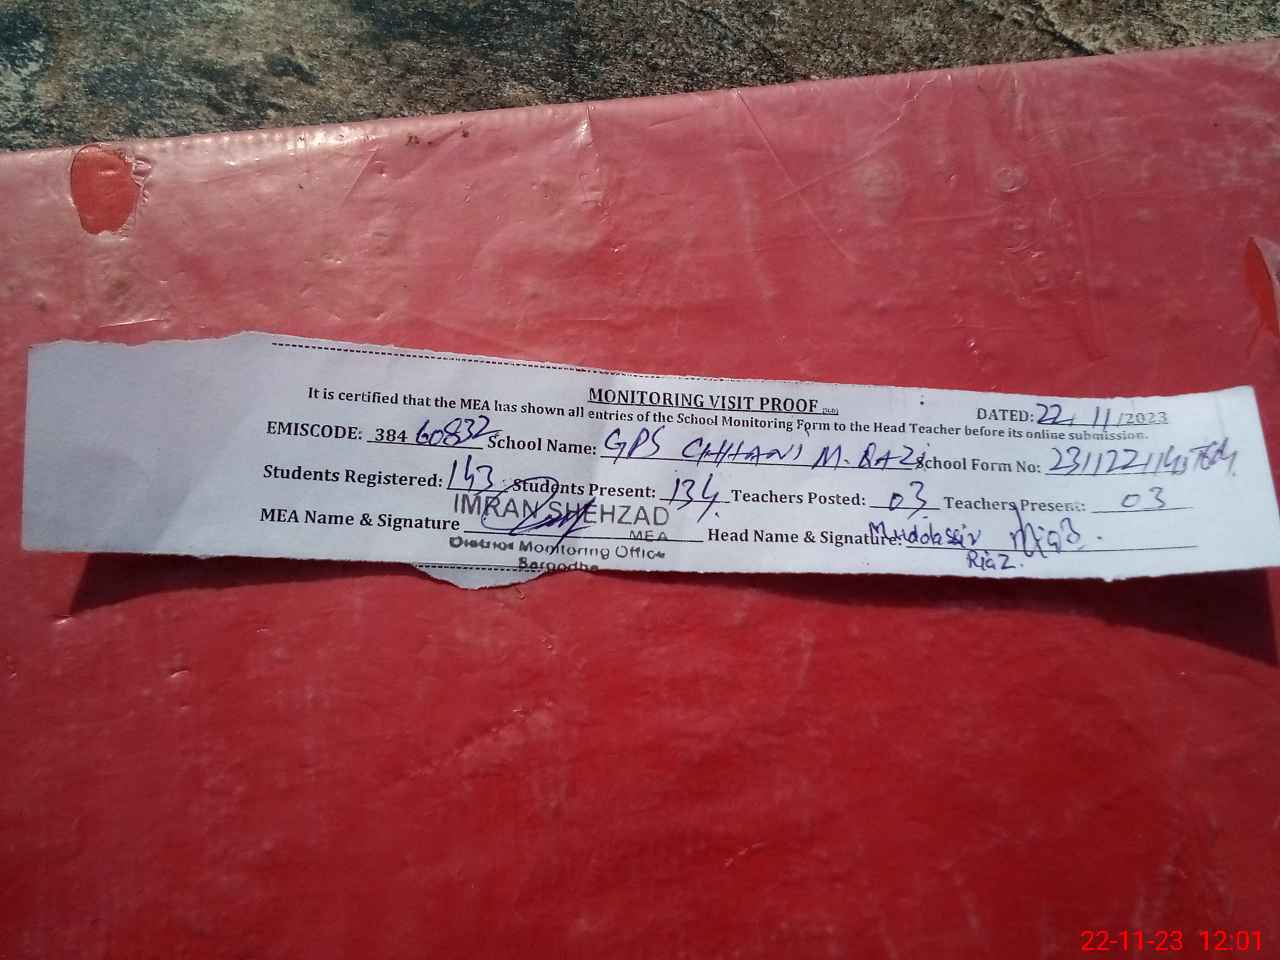 MONITORING VISIT PROOF
DATED: 22/11/2023
It is certified that the MEA has shown all entries of the School Monitoring Form to the Head Teacher before its online submission.
EMISCODE: 384 60832 School Name: GPS CHHANI M. RAZI School Form No:
Students Registered: 143 Students Present: 134 Teachers Posted: 03 Teachers Present: 03
IMRAN SHEHZAD
MEA Name & Signature Head Name & Signature: Mudolassir Riaz
MEA
District Monitoring Office
Sargodha
22-11-23 12:01